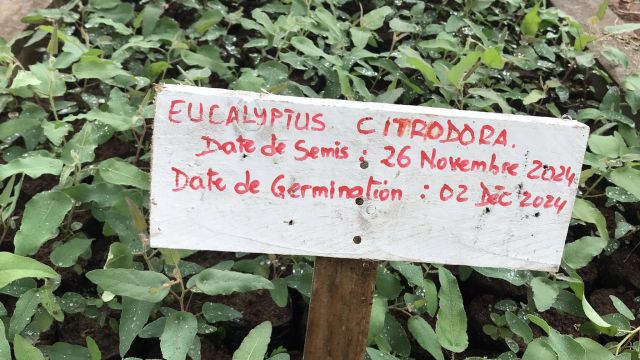 EUCALYPTUS CITRODORA.
Date de Semis : 26 Novembre 2024
Date de Germination : 02 DÉC 2024